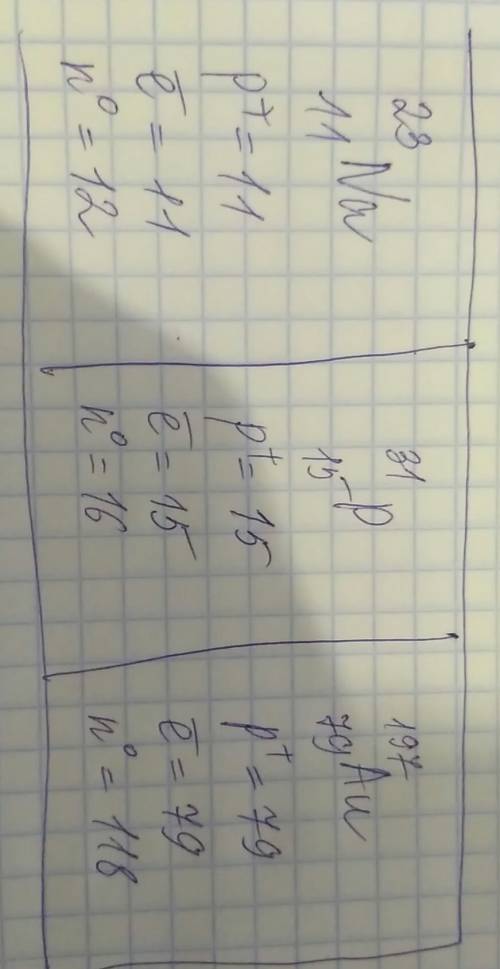 23
11 Na
p+ = 11
e̅ = 11
n⁰ = 12
31
15 P
p+ = 15
e̅ = 15
n⁰ = 16
197
79 Au
p+ = 79
e̅ = 79
n⁰ = 118